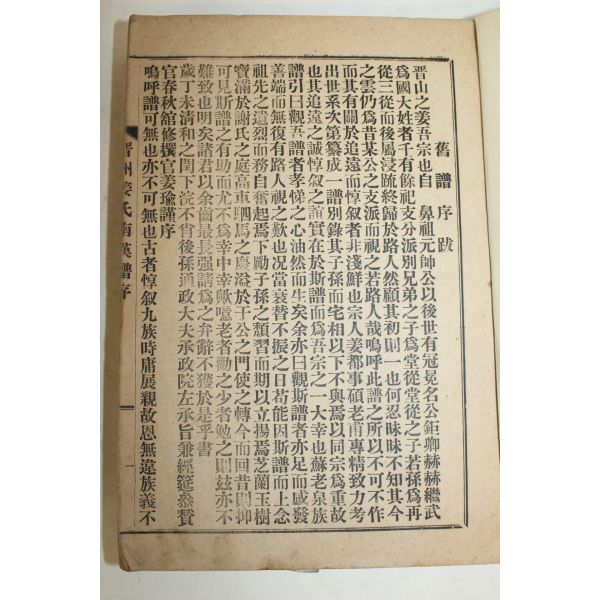 舊譜序跋
晋山之姜吾宗也自 鼻祖元帥公以後世有冠冕名公鉅卿赫赫繼武
爲國大姓者千有餘祀支分派別兄弟之子爲堂從堂從之子若孫爲再
從三從而後屬浸疏終歸於路人然顧其初則一也何忍昧昧不知其今
之雲仍爲昔某公之支派而視之若路人哉嗚呼此譜之所以不可不作
而其有關於追遠而惇叙者非淺鮮也宗人姜都事碩老甫專精致力考
出世系次第纂成一譜別錄其子孫而宅相以下不與焉以同宗爲重故
也其追遠之誠惇叙之誼實在於斯譜而爲吾宗之一大幸也蘇老泉族
譜引曰觀吾譜者孝悌之心油然而生矣余亦曰觀斯譜者亦足而感發
善端而無復有路人視之歎也况當衰替不振之日苟能因斯譜而上念
祖先之遺烈而務自奮起焉下勵子孫之頹習而期以立揚焉芝蘭玉樹
寶滿於謝氏之庭高車駟馬之慶溢於于公之門使之轉今而回昔則抑
可見斯譜之有助而尤不爲幸中幸歟噫老者勸之少者勉之則玆亦不
難致也明矣諸君以余齒最長强請爲之弁辭不獲於是乎書
歲丁未淸和之閏下浣不肖後孫通政大夫承政院左承旨兼經筵叅贊
官春秋舘修撰官姜瑜謹序
嗚呼譜可無也亦不可無也古者惇叙九族時庸展親故恩無違族義不
晋州姜氏南漢譜序